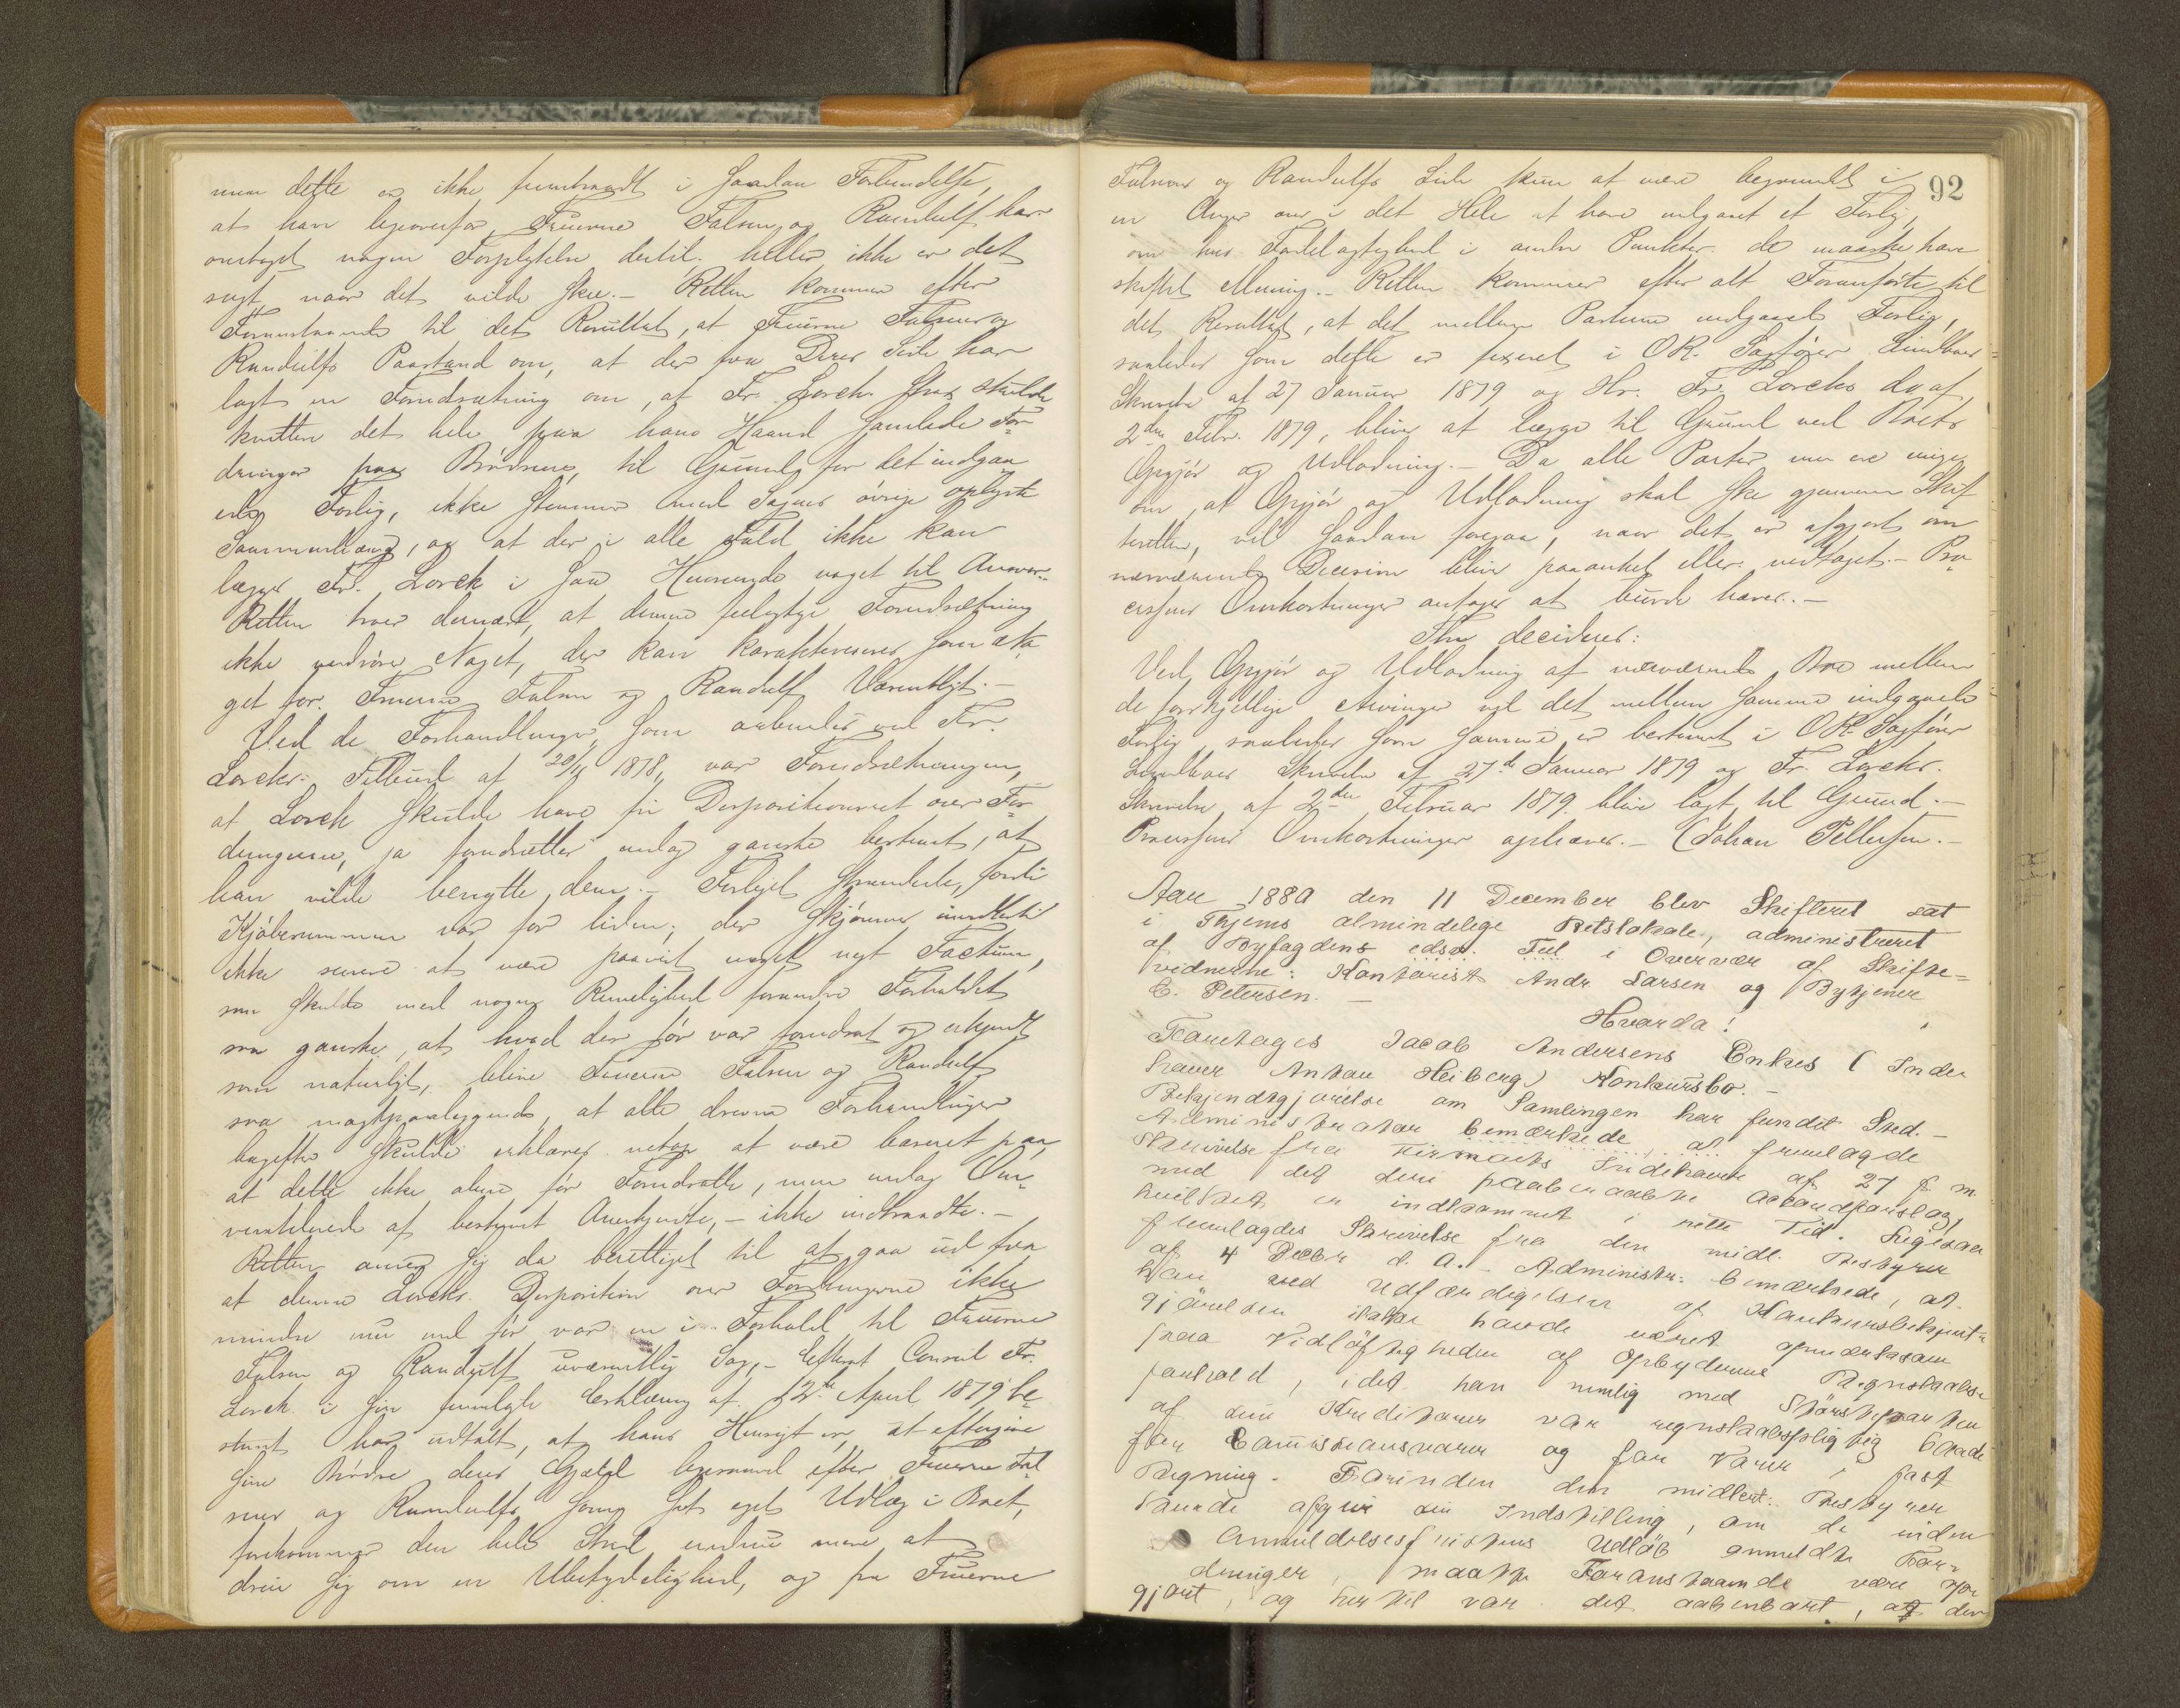 men dette er ikke fremkomet i saadan Forbindelse,
at han ligeoverfor Fruerne Falsen og Randulff har
overtaget nogen Forpligtelse dertil. heller ikke er det
sagt, naar det vilde ske.- Retten kommer efter
Foranstaaende til det Resultat, at Fruerne Falsens og
Randulffs Paastand om, at der fra Deres Side har
lagt en Forudsætning om, at Fr. Lorck strax skulde
kvittere det hele paa hans Haand samlede For-
dringer paa Brødrene, til Grund for det indgaa-
ede Forlig, ikke stemmer med Sagens øvrige oplyste
Sammenhæng, og at der i alle Fald ikke kan
lægges Fr. Lorck i saa Henseende noget til Ansvar.-
Retten troer dernæst, at denne feilagtige Forudsætning
ikke vedrører Noget, der kan karakteriseres som no-
get for Fruerne Falsen og Randulff Væsentligt.-
Ved de Forhandlinger, som aabnedes ved Fr.
Lorcks Tilbud af 20/11 1878, var Forudsætningen,
at Lorck skulde have fri Dispositionsret over For-
dringerne, ja forudsætter endog ganske bestemt, at
han vilde benytte dem.- Forliget strandede, fordi
Kjøbesummen var for liden; der skjønnes imidlertid
ikke senere at være paavist noget nyt Factum,
som skulde med nogen Rimelighed forandre Forholdet
saa ganske, at hvad der før var forudsat og erkjendt
som naturligt, bliver Fruerne Falsen og Randulff
saa magtpaaliggende, at alle drevne Forhandlinger
bagefter skulde erklæres netop at være baseret paa,
at dette ikke alene før Forudsatte, men endog
af bestemt Anerkjendte, - ikke indtraadte.-
Retten anser sig da berettiget til at gaa ud fra
at denne Lorcks Disposition over Fordringerne ikke
mindre nu end før var en i Forhold til Fruerne
Falsen og Randulff uvæsentlig Sag,- Efterat Consul Fr.
Lorck i sin fremlagte Erklæring af 12te April 1879 be-
stemt har udtalt, at hans Hensigt er, at eftergive
sine Brødre deres Gjæld ligesaavel efter Fruerne Fal-
sens og Randulffs som sit eget Udlæg i Boet,
forekommer den hele Strid endnu mere at
dreie sig om en Ubetydelighed, og fra Fruerne
92
Falsens og Randulffs Side kun at være begrundet i
en Anger over i det Hele at have indgaaet et Forlig,
om hvis Fordelagtighed i andre Punkter de maaske have
skiftet Mening.- Retten kommer efter alt Foranførte til
det Resultat, at det mellem Parterne indgaaede Forlig,
saaledes som dette er fixeret i OR. Sagfører Lindboes
Skrivelse af 27 Januar 1879 og Hr. Fr. Lorcks do af
2den Febr. 1879, bliver at lægge til Grund ved Boets
Opgjør og Udlodning.- Da alle Parter nu ere enige
om, at Opgjør og Udlodning skal ske gjennem Skif-
teretten, vil saadan foregaa, naar det er afgjort om
nærværende Decision bliver paaanket eller vedtaget.- Pro-
cessens Omkostninger antages at burde hæves.-
Thi decideres:
Ved Opgjør og Udlodning af nærværende Bo mellem
de forskjellige Arvinger vil det mellem samme indgaaede
Forlig saaledes som samme er bestemt i OR. Sagfører
Lindboes Skrivelse af 27de Januar 1879 og Fr. Lorcks
Skrivelse af 2den Februar 1879 blive lagt til Grund.-
Processens Omkostninger ophæves.- Johan Pettersen.-
Aar 1880 den 11 December blev Skifteret sat
i Thjems almindelige Retslokale, administreret
af Byfogdens edsv. Ful i Overvær af Skifte=
vidnerne: Kontorist Andr Larsen og Bytjener
C. Petersen.-
Hvorda!
Foretages Jacob Andersens Enkes (Inde
haver Anton Heiberg) Konkursbo.-
Bekjendtgjørelse om Samlingen har fundet Sted.-
Administrator bemærkede, at fremlagde
Skrivelse fra Firmaets Indehaver af 27 f. m.
med det dem paaberaabte Accordforslag,
hvilket er indkommet i rette Tid. Ligesaa
fremlagdes Skrivelse fra den midl. Bestyrer
af 4 Decbr d. A.- Administr. bemærkede, at
han ved Udfærdigelsen af Konkursbekjendt-
gjørelsen ikke havde været opmærksom
paa Vidløftigheden af Opbydernes Regnskabs-
forhold, idet han nemlig med Størsteparten
af sine Kreditorer var regnskabspligtig baade
for Commissionsvarer og for Varer i fast
Regning. Forinden den midlert. Bestyrer
kunde afgive sin Indstilling, om de inden
Anmeldelsesfristens Udløb anmeldte For-
dringer, maatte Foranstaaende være op-
gjort, og hertil var det aabenbart, at den